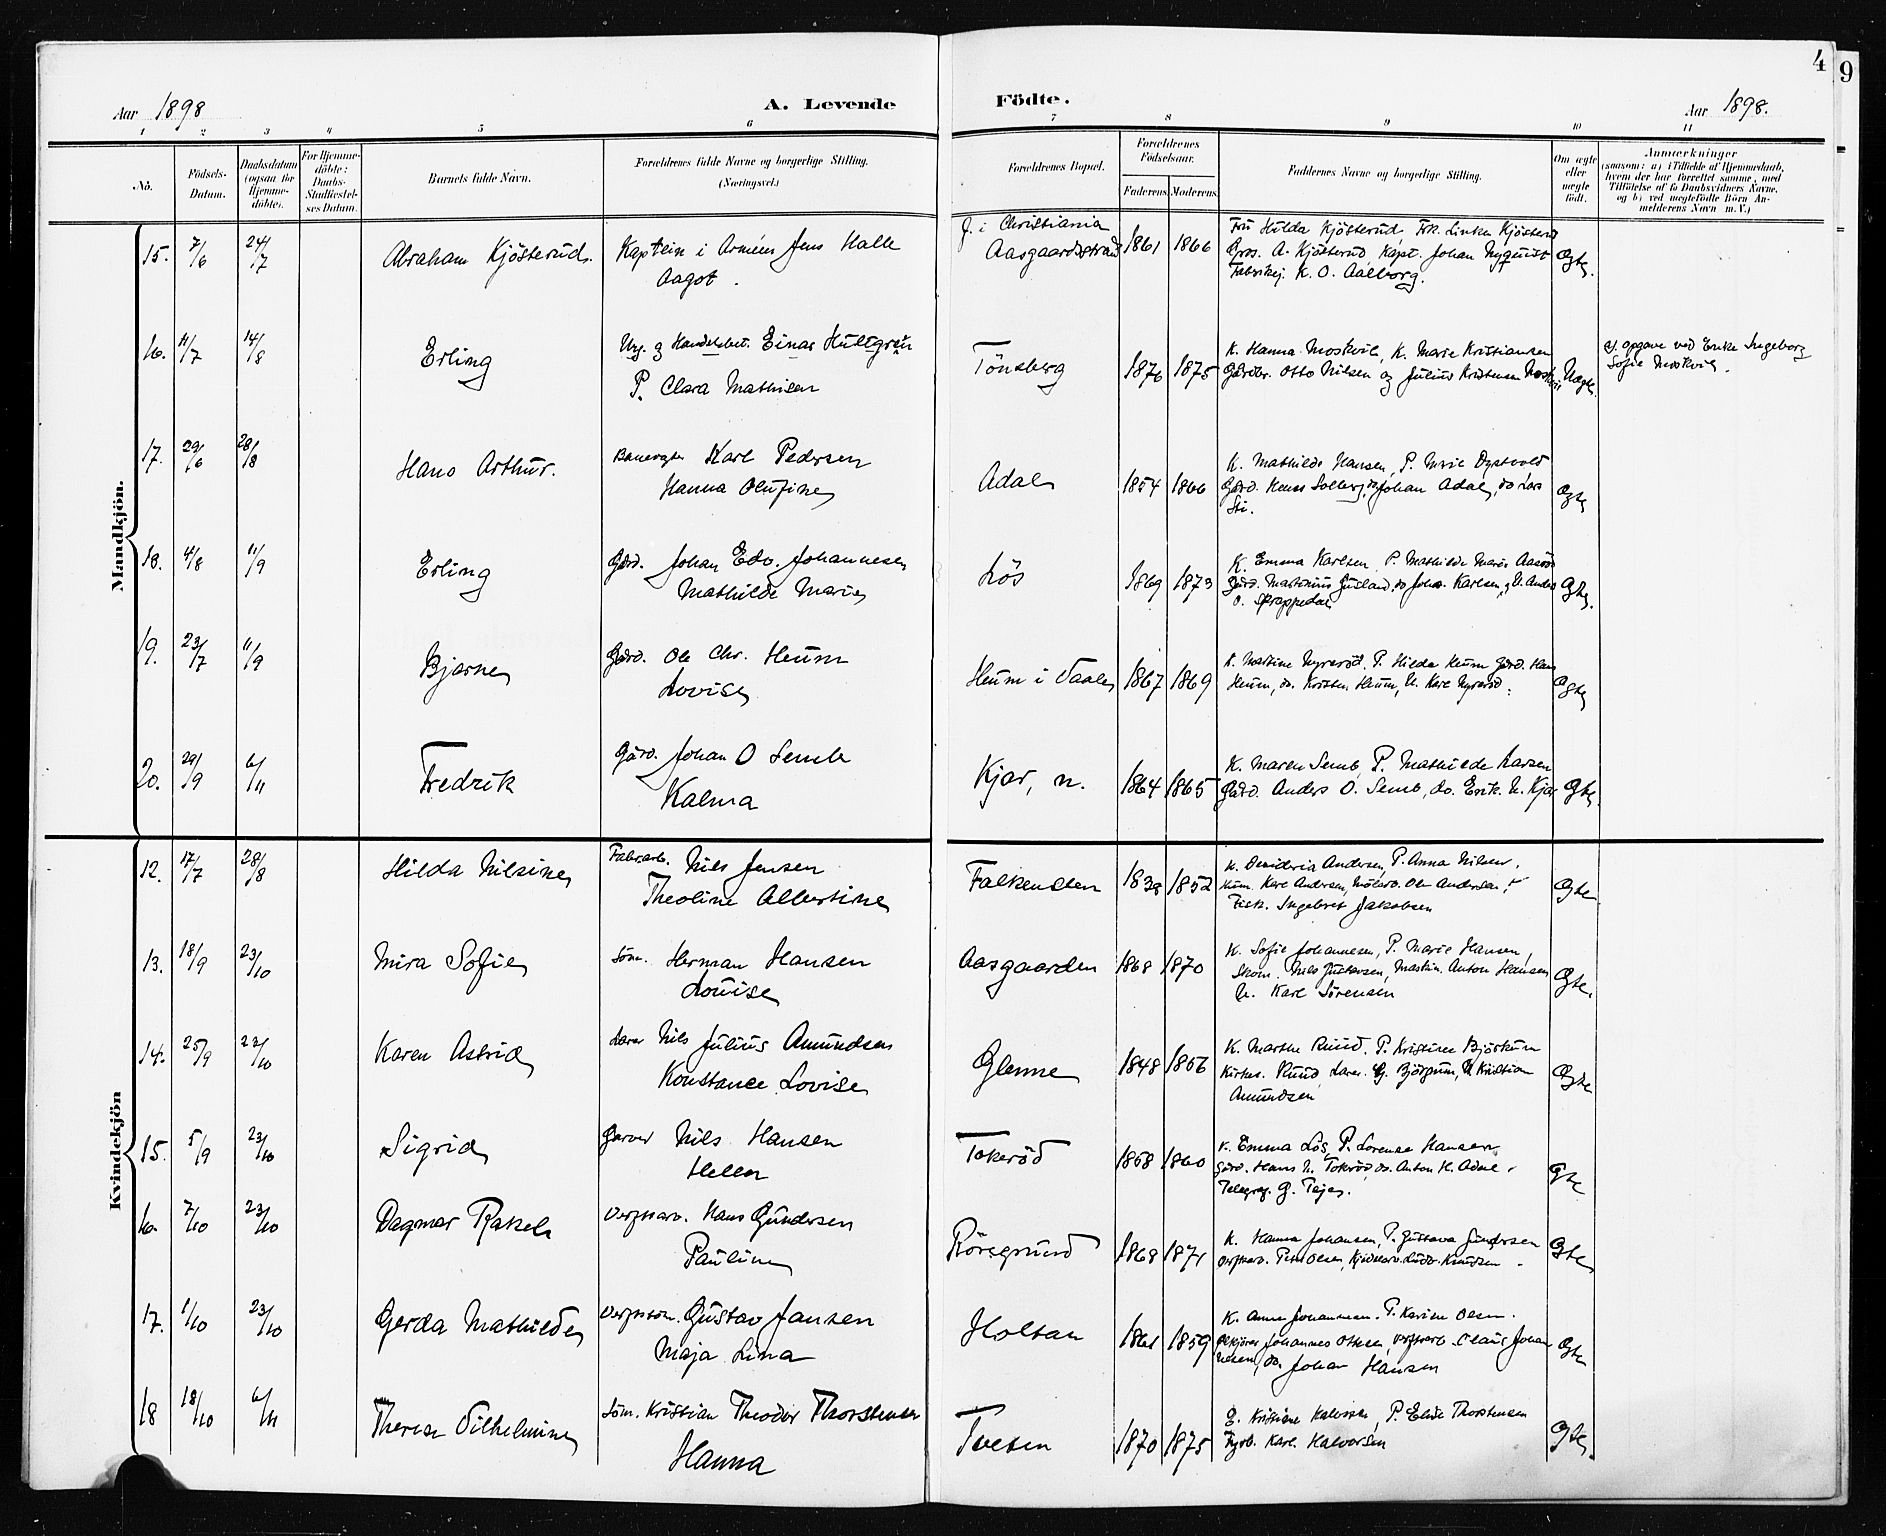 4
9
Aar 1898
A. Levende
Födte.
Aar 1898.
1 2 3 4 5 6 7 8 9 10 11
No.
Födsels-Datum.
Daabsdatum (ogsaa for Hjemme-döbte).
For Hjemme-döbte: Daabs-Stadfæstel-ses Datum.
Barnets fulde Navn.
Forældrenes fulde Navne og borgerlige Stilling.
(Næringsvei.)
Forældrenes Bopæl.
Forældrenes Födselsaar.
Faderens Moderens
Faddernes Navne og borgerlige Stilling.
Om ægte eller uægte födt.
Anmærkninger
(saasom: a) i Tilfælde af Hjemmedaab,
hvem der har forrettet samme, med
Tilföielse af to Daabsvidners Navne,
og b) ved uægtefödte Börn An-
melderens Navn m. V.)
Mandkjön.
15. 7/6 24/7 Abraham Kjösterud. Kaptein i Armeen Jens Halle
Aagot.
f. i Christiania
Aasgaardstrand 1861 1866
Fru Hilda Kjösterud Frk. Linken Kjösterud
Gros. A. Kjösterud, Kapt. Johan Nyquist
Fabrikej. K. O. Aalborg.
Ægte.
16. 11/7 14/8 Erling
Ung. og Handelsbet. Einar Hultgren
P. Clara Mathisen
Tönsberg 1876 1875
K. Hanna Moskvil, K. Marie Kristiansen
Gårdbr. Otto Nilsen og Julius Kristensen Moskvil
Uægte.
e. opgave ved Enke Ingeborg
Sofie Moskvil.
17. 29/6 28/8 Hans Arthur.
Banevogter Karl Pedersen
Hanna Olufine
Adal 1854 1866
K. Mathilde Hansen, P. Marie
Gård. Solberg, do Johan Adal, do Lars
Sti.
Ægte
18. 4/8 11/9 Erling
Gård. Johan Edv. Johannesen
Mathilde Marie
Lös 1869 1873
K. Emma Karlsen P. Mathilde Marie
Gård. do Joh. Karlsen, U. Anders
O. Skrappedal
Ægte.
19. 23/7 11/9 Bjarne
Gård. Ole Chr. Heum
Lovise
Heum i Vaale 1867 1869
K. Martine Nyreröd. P. Hilda Heum Gård. Hans
Heum, do. Kristen Heum, U. Karl Nyreröd.
Ægte
20. 29/9 6/11 Fredrik
Gård. Johan O Semb
Kalma
Kjær, n. 1864 1865
K. Maren Semb, P. Mathilde Larsen
Gård. Anders O. Semb, do. Erik N. Kjær
Ægte.
Kvindekjön
12. 17/7 28/8 Hilda Nilsine
Fabr.arb. Nils Jensen
Theoline Albertine
Falkensten 1838 1852
K. Andersen, P. Anna Nilsen.
Karl Andersen, Ole Andersen,
Fisk. Ingebret Jakobsen
Ægte
13. 18/9 23/10 Mira Sofie
Söm. Herman Hansen
Lovise
Aasgaarden 1868 1870
K. Sofie Johannesen, P. Marie Hansen,
Skom. Nils Gustavsen, Maskin. Anton Hansen
U. Karl Sörensen
Ægte.
14. 25/9 23/10 Karen Astrid
Lærer Nils Julius Amundsen
Konstance Lovise
Glenne 1848 1856
K. Marthe Ruud. P. Kristine Björkum
Kirkes. Ruud, Lærer G. Björgum, U. Kristian
Amundsen
Ægte
15. 5/9 23/10 Sigrid
Garver Nils Hansen
Hellen
Tokeröd 1858 1860
K. Emma Lös, P. Lorense Hansen
Gård. Hans N. Tokeröd, do. Anton H. Adal.
Telegraf. G. Teje.
Ægte
16. 7/10 23/10 Dagmar Rakel
Verftsarb. Hans Gundersen
Pauline
Röregrund 1868 1871
K. Hanna Johansen, P. Gustava Gundersen
Verftsarb. Olsen, Ludv. Knudsen.
Ægte
17. 1/10 23/10 Gerda Mathilde
Verftstöm. Gustav Jansen
Maja Lina
Holtan 1861 1859
K. Anne Johannesen. P. Karine Olsen.
Johannes Ottesen, Verftsarb. Claus Johan
nesen, do. Johan Hansen
Ægte
18 18/10 6/11 Therese Vilhelmine
Söm. Kristian Theodor Thorstensen
Hanna
Tveten 1870 1875
K. Kristine Halvorsen, P. Elise Thorstensen
Fyrb. Karl Halvorsen
Ægte.